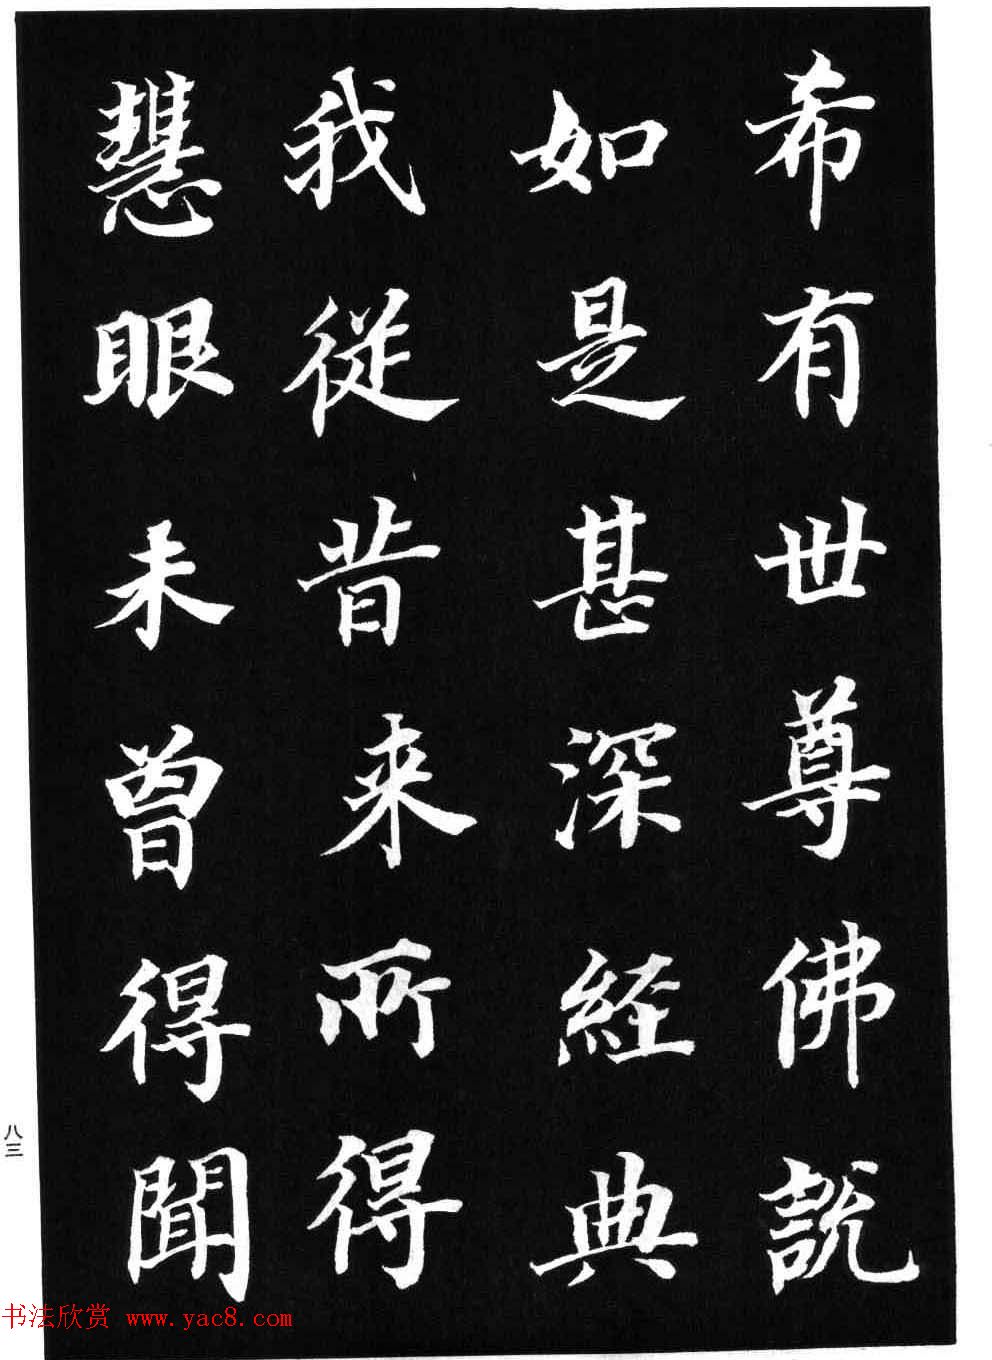 希有世尊佛説
如是甚深經典
我從昔來所得
慧眼未曾得聞
八三
书法欣赏 www.yac8.com